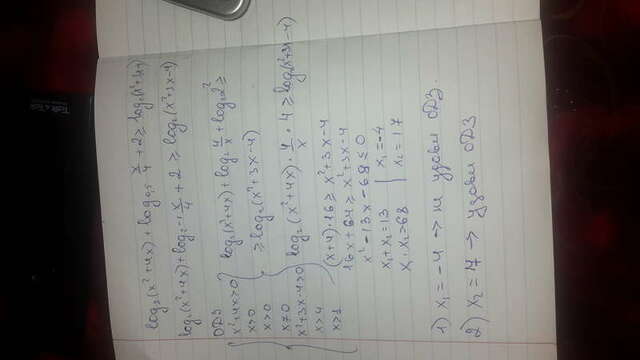 log₂(x²+4x) + log₀,₅ x/4 + 2 ≥ log₂(x²+3x-4)
log₂(x²+4x) + log₂-1 x/4 + 2 ≥ log₂(x²+3x-4)
ОДЗ
x²+4x>0
x>0
x≠0
x²+3x-4>0
x>4
x>1
log₂(x²+4x) + log₂ 4/x + log₂2² ≥
≥ log₂(x²+3x-4)
log₂(x²+4x) · 4/x · 4 ≥ log₂(x²+3x-4)
(x+4)·16 ≥ x²+3x-4
16x+64 ≥ x²+3x-4
x²-13x-68 ≤ 0
x₁+x₂=13 | x₁=-4
x₁·x₂=68 | x₂=17
1) x₁=-4 → не удовл ОДЗ.
2) x₂=17 → удовл ОДЗ